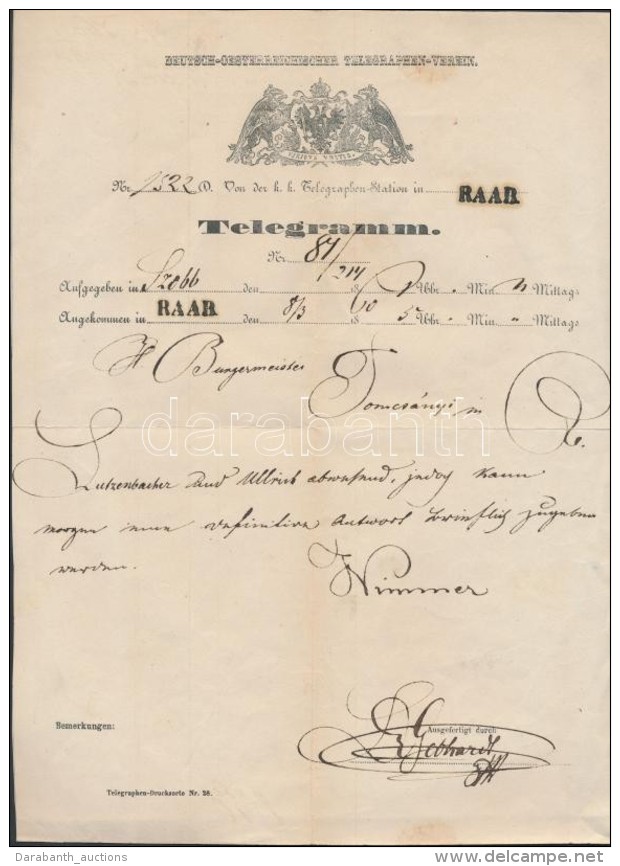 DEUTSCH-OESTERREICHISCHER TELEGRAPHEN-VEREIN.
VIRIBUS UNITIS.
Nr. 1522 D. Von der k. k. Telegraphen-Station in RAAB
Telegramm.
Nr. 81/214
Aufgegeben in Szobb den 18 Uhr Min. Mittags
Angekommen in RAAB den 8/3 1860 5 Uhr " Min. " Mittags
H Burgermeister Tomcsányi in R.
darabanth
Lutzenbacher und Ullrich abwesend, jedoch kann
morgen eine definitive Antwort brieflich zugeben
werden.
Nimmer
Bemerkungen:
Ausgefertigt durch
Gebhardt
Telegraphen-Drucksorte Nr. 28.
Darabanth_auctions
www.delcampe.net